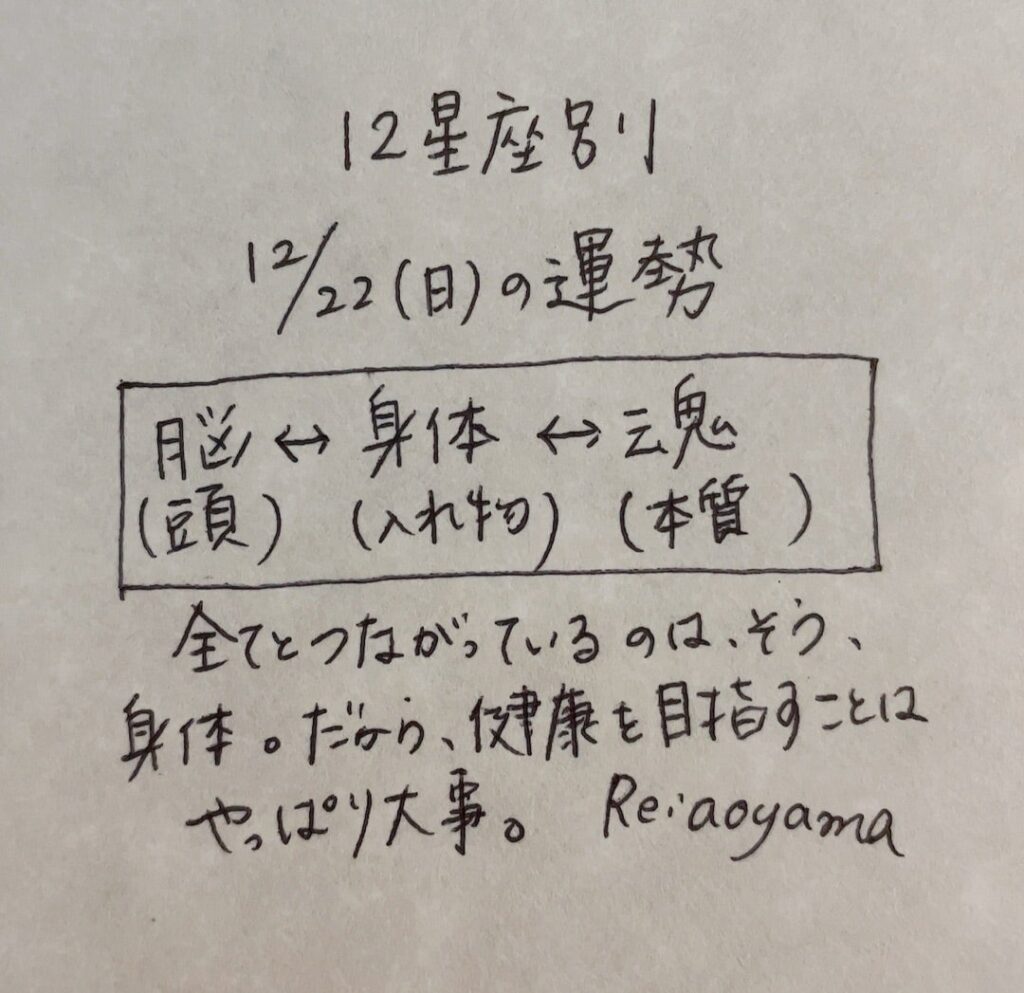 12星座別
12/22(日)の運勢
脳↔身体↔魂
(頭) (入れ物) (本質)
全てとつながっているのは、そう、
身体。だから、健康を目指すことは
やっぱり大事。 Rei.aoyama